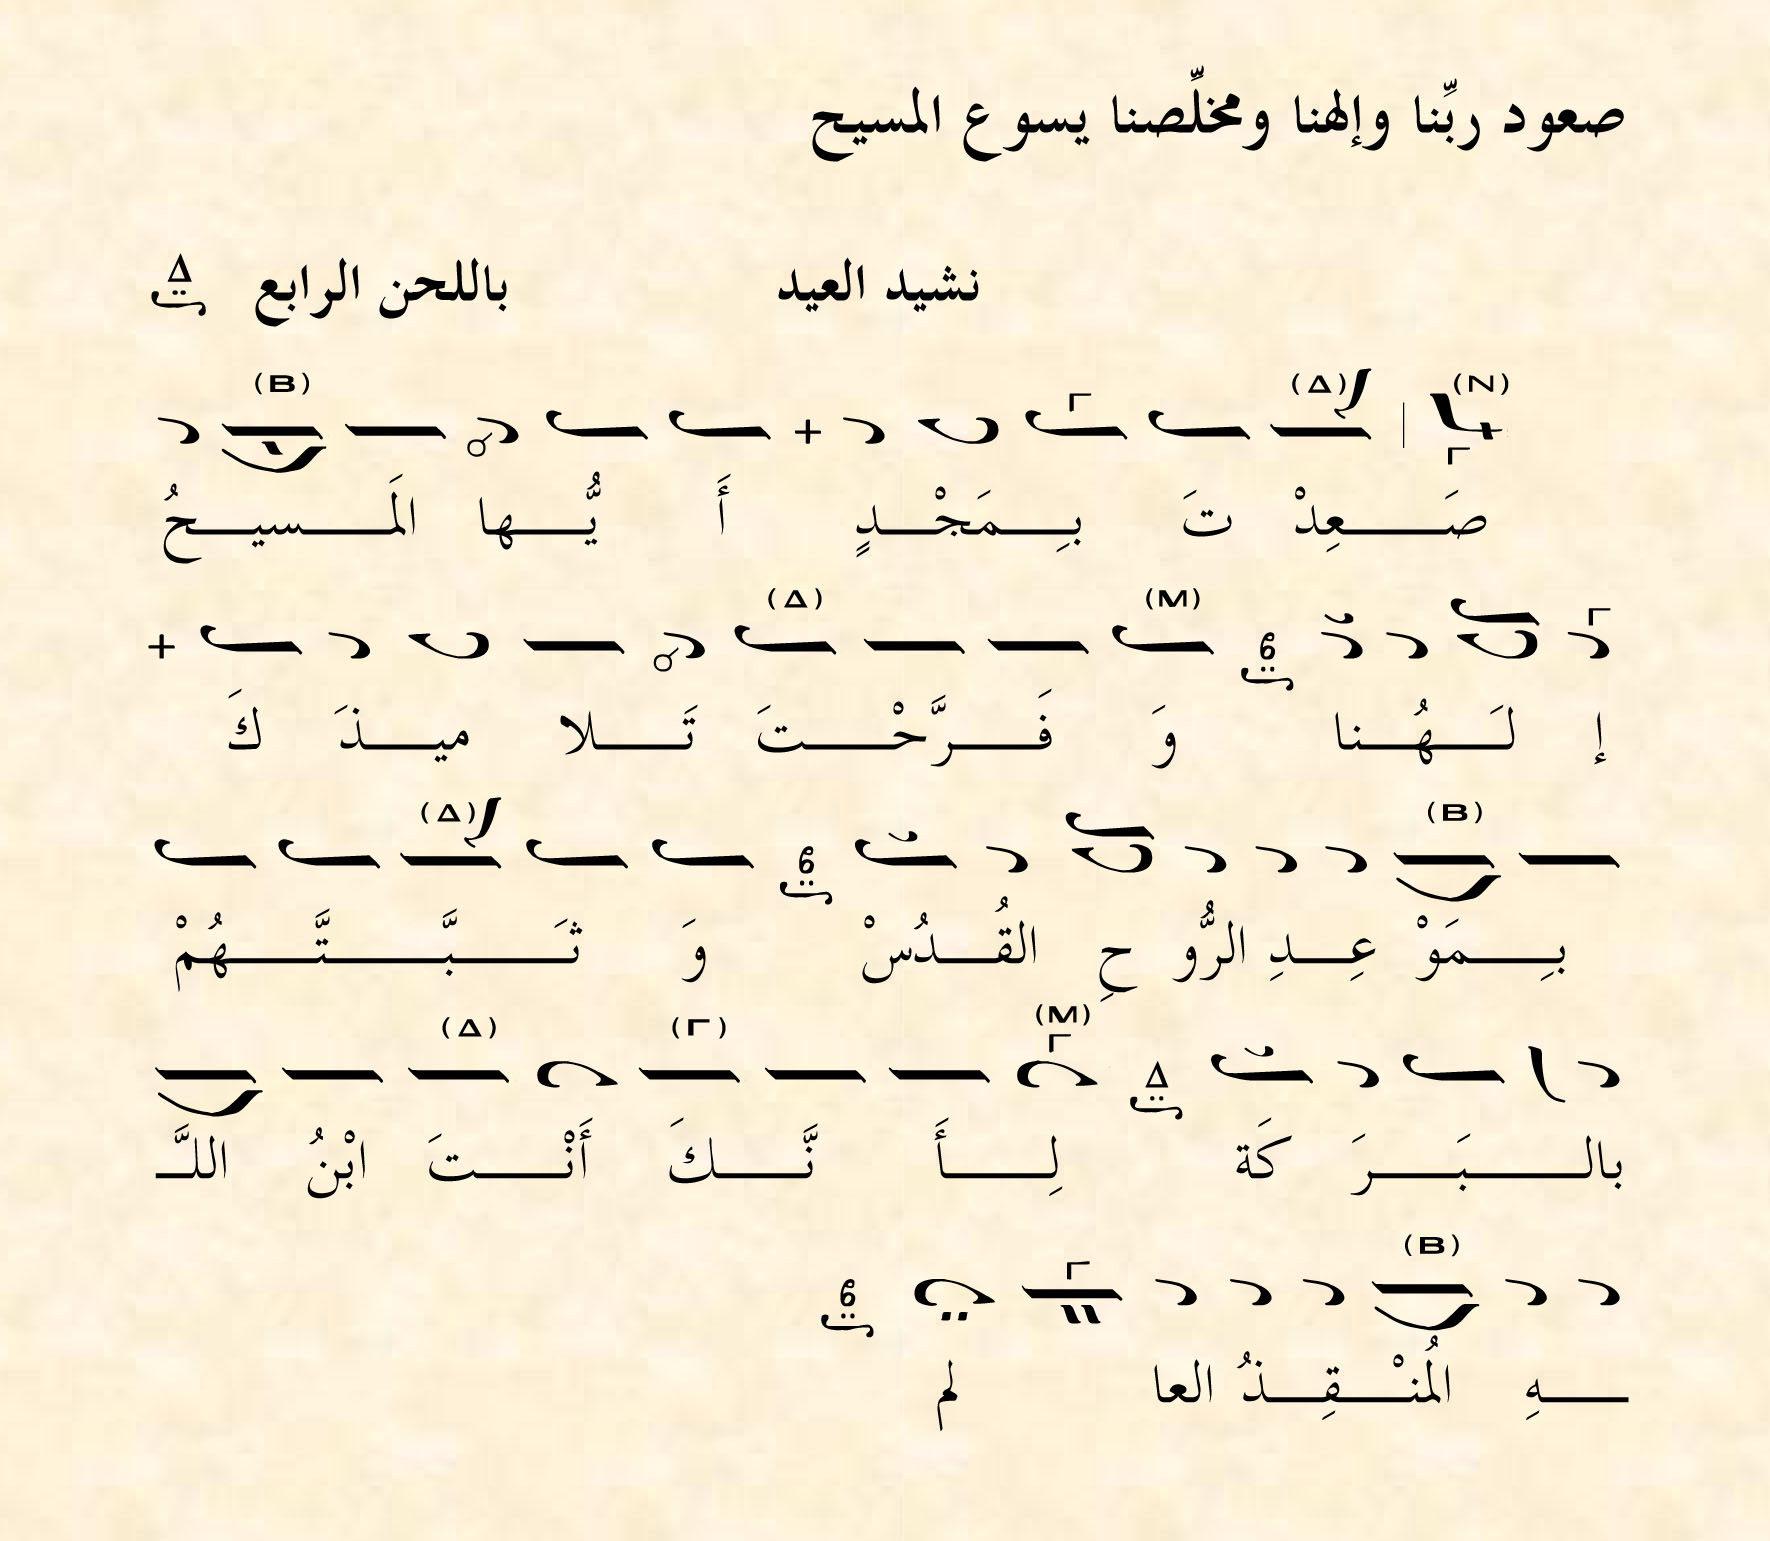 صعود ربِّنا وإلهنا ومخلِّصنا يسوع المسيح
نشيد العيد باللحن الرابع Δ
(N) (Δ) Γ Γ (B)
صَـعِدْ تَ بِـمَجْـدٍ أَ يُّـها الَمـسيـحُ
Γ (M) (Δ)
إ لَـهُـنا وَ فَـرَّحْـتَ تَـلا ميـذَ كَ
(B) (Δ)
بِـمَوْ عِـدِ الرُّو حِ القُـدُسْ وَ ثَـبَّـتَّـهُمْ
Δ (M) Γ (Γ) (Δ)
بالـبَـرَ كَة لِـأَ نَّـكَ أَنْـتَ ابْنُ اللَّـ
(B) Γ
ـهِ الُمنْـقِـذُ العا لم